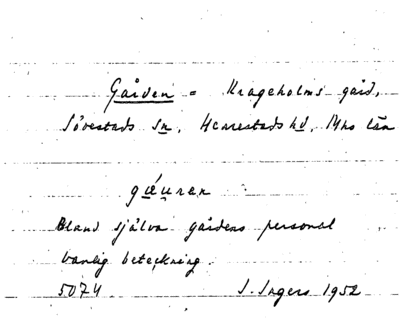 Gården = Krageholms gård,
Sövestads sn, Herrestads hd, Mhs län
gǽu̯rən
Bland själva gårdens personal
vanlig beteckning.
5074 I. Ingers 1952